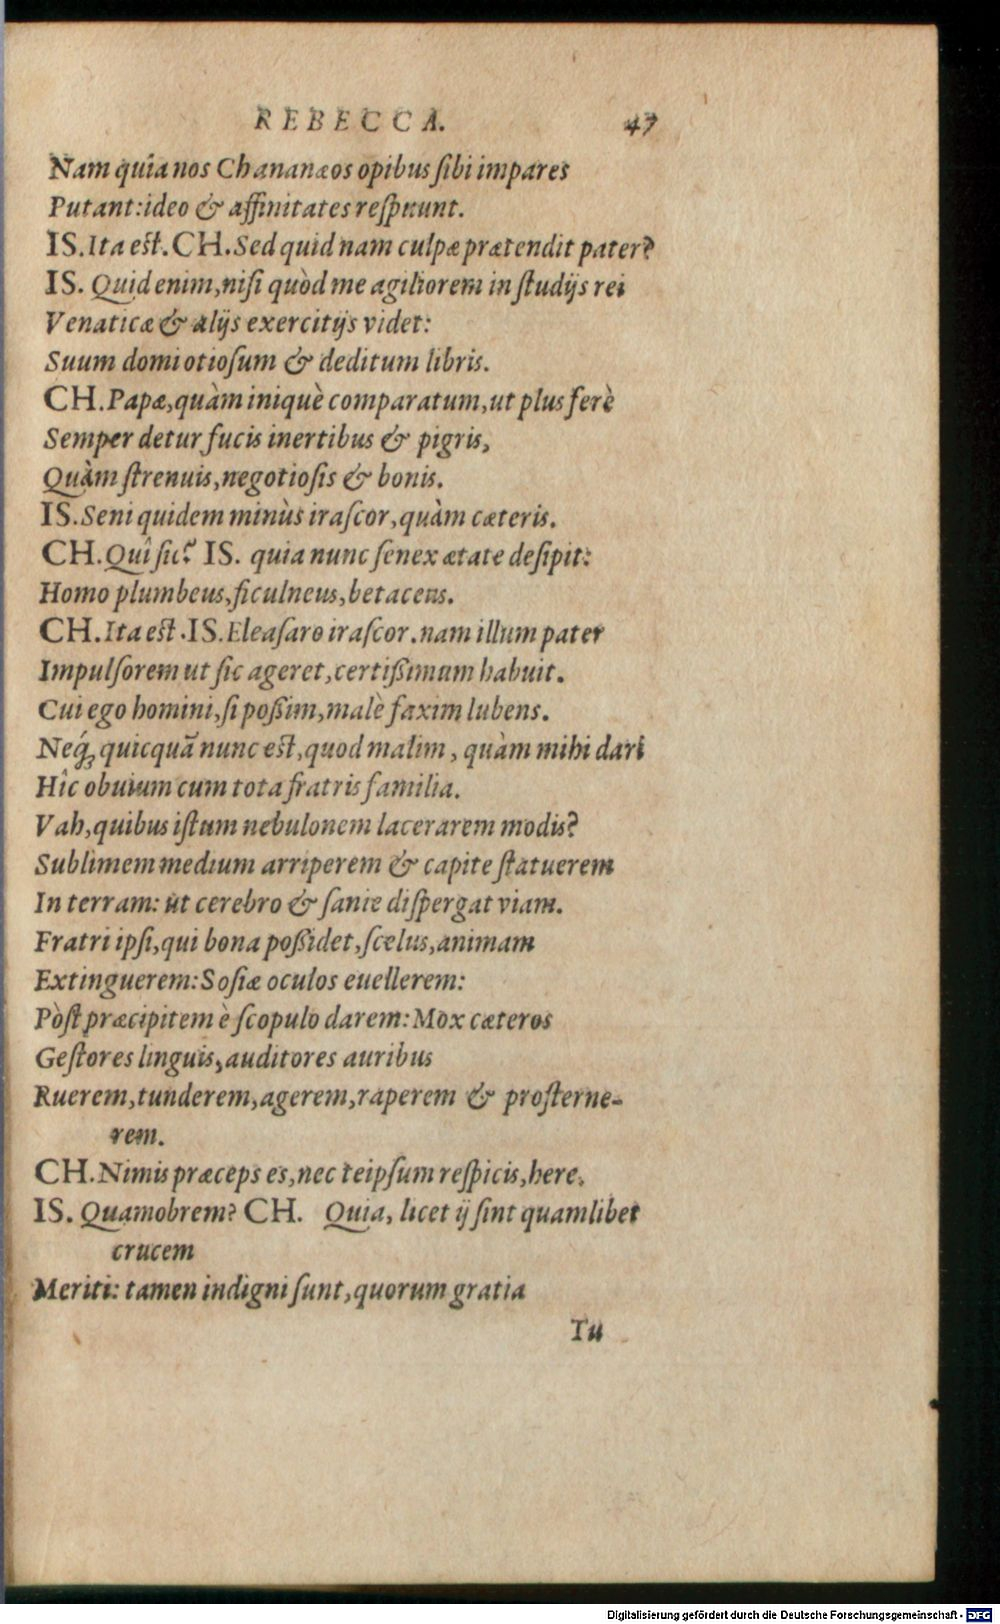 REBECCA. 47
Nam quîa nos Chananæos opibus ſibi impares
Putant: ideo & affinitates reſpuunt.
IS. Ita eſt. CH. Sed quid nam culpæ prætendit pater?
IS. Quid enim, niſi quòd me agiliorem in ſtudijs rei
Venaticæ & alijs exercitijs videt:
Suum domi otioſum & deditum libris.
CH. Papæ, quàm iniquè comparatum, ut plus ferè
Semper detur fucis inertibus & pigris,
Quàm ſtrenuis, negotioſis & bonis.
IS. Seni quidem minùs iraſcor, quàm cæteris.
CH. Quî ſic? IS. quia nunc ſenex ætate deſipit:
Homo plumbeus, ficulneus, betaceus.
CH. Ita eſt. IS. Eleaſaro iraſcor. nam illum pater
Impulſorem ut ſic ageret, certißimum habuit.
Cui ego homini, ſi poßim, malè faxim lubens.
Neq́ꝫ quicquã nunc eſt, quod malim, quàm mihi dari
Hîc obuium cum tota fratris familia.
Vah, quibus iſtum nebulonem lacerarem modis?
Sublimem medium arriperem & capite ſtatuerem
In terram: ut cerebro & ſanie diſpergat viam.
Fratri ipſi, qui bona poßidet, ſcelus, animam
Extinguerem: Soſiæ oculos euellerem:
Pòſt præcipitem è ſcopulo darem: Mox cæteros
Geſtores linguis, auditores auribus
Ruerem, tunderem, agerem, raperem & proſterne-
rem.
CH. Nimis præceps es, nec teipſum reſpicis, here.
IS. Quamobrem? CH. Quia, licet ij ſint quamlibet
crucem
Meriti: tamen indigni ſunt, quorum gratia
Tu
Digitalisierung gefördert durch die Deutsche Forschungsgemeinschaft - DFG